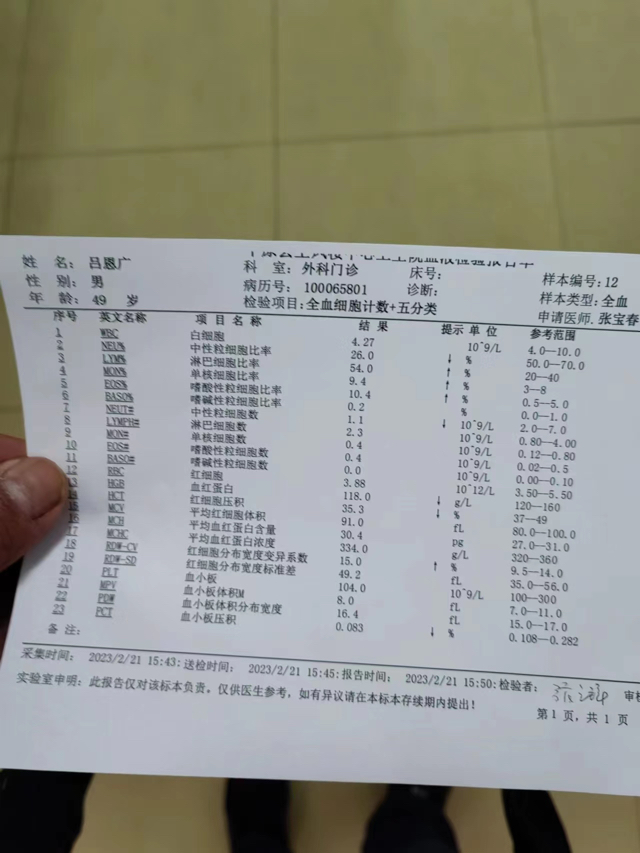 姓 名: 吕恩广 科 室: 外科门诊 床号: 样本编号: 12
性 别: 男 病历号: 100065801 诊断: 样本类型: 全血
年 龄: 49 岁 检验项目: 全血细胞计数+五分类 申请医师. 张宝春
序号 英文名称 项 目 名 称 结 果 提示 单 位 参考范围
1 WBC 白细胞 4.27 10^9/L 4.0--10.0
2 NEU% 中性粒细胞比率 26.0 ↓ % 50.0--70.0
3 LYM% 淋巴细胞比率 54.0 ↑ % 20--40
4 MON% 单核细胞比率 9.4 ↑ % 3--8
5 EOS% 嗜酸性粒细胞比率 10.4 ↑ % 0.5--5.0
6 BASO% 嗜碱性粒细胞比率 0.2 % 0.0--1.0
7 NEUT# 中性粒细胞数 1.1 ↓ 10^9/L 2.0--7.0
8 LYMPH# 淋巴细胞数 2.3 10^9/L 0.80--4.00
9 MON# 单核细胞数 0.4 10^9/L 0.12--0.80
10 EOS# 嗜酸性粒细胞数 0.4 10^9/L 0.02--0.5
11 BASO# 嗜碱性粒细胞数 0.0 10^9/L 0.00--0.10
12 RBC 红细胞 3.88 10^12/L 3.50--5.50
13 HGB 血红蛋白 118.0 ↓ g/L 120--160
HCT 红细胞压积 35.3 ↓ % 37--49
MCV 平均红细胞体积 91.0 fL 80.0--100.0
16 MCH 平均血红蛋白含量 30.4 pg 27.0--31.0
17 MCHC 平均血红蛋白浓度 334.0 g/L 320--360
18 RDW-CV 红细胞分布宽度变异系数 15.0 ↑ % 9.5--14.0
19 RDW-SD 红细胞分布宽度标准差 49.2 fL 35.0--56.0
20 PLT 血小板 104.0 10^9/L 100--300
21 MPV 血小板体积M 8.0 fL 7.0--11.0
22 PDW 血小板体积分布宽度 16.4 fL 15.0--17.0
23 PCT 血小板压积 0.083 ↓ % 0.108--0.282
备 注:
采集时间: 2023/2/21 15:43:送检时间: 2023/2/21 15:45:报告时间: 2023/2/21 15:50:检验者: 审核
实验室申明: 此报告仅对该标本负责, 仅供医生参考, 如有异议请在本标本存续期内提出!
第 1 页, 共 1 页